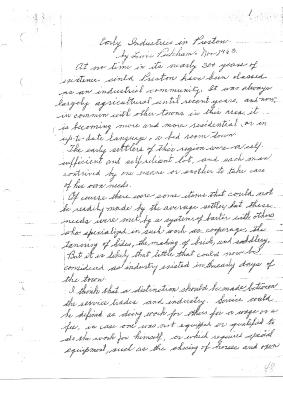 Early Industries in Preston
by Lewis Peckham Nov. 1968
At no time in its nearly 300 years of
existence could Preston have been classed
as an industrial community. It was always
largely agricultural until recent years, and now,
in common with other towns in this area, it
is becoming more and more residential, or in
up-to-date language, a bed room town
The early settlers of this region were a self
sufficient and self reliant lot, and each man
contrived by one means or another to take care
of his own needs.
Of course there were some items that could not
be readily made by the average settler but these
needs were met by a system of barter with others
who specialized in such work as cooperage, the
tanning of hides, the making of brick, and saddlery.
But it is likely that little that could now be
considered as industry existed in the early days of
the town
I think that a distinction should be made between
the service trades and industry. Service could
be defined as doing work for others for a wage or a
fee, in case one was not equipped or qualified to
do the work for himself, or which required special
equipment, such as the shoeing of horses and oxen